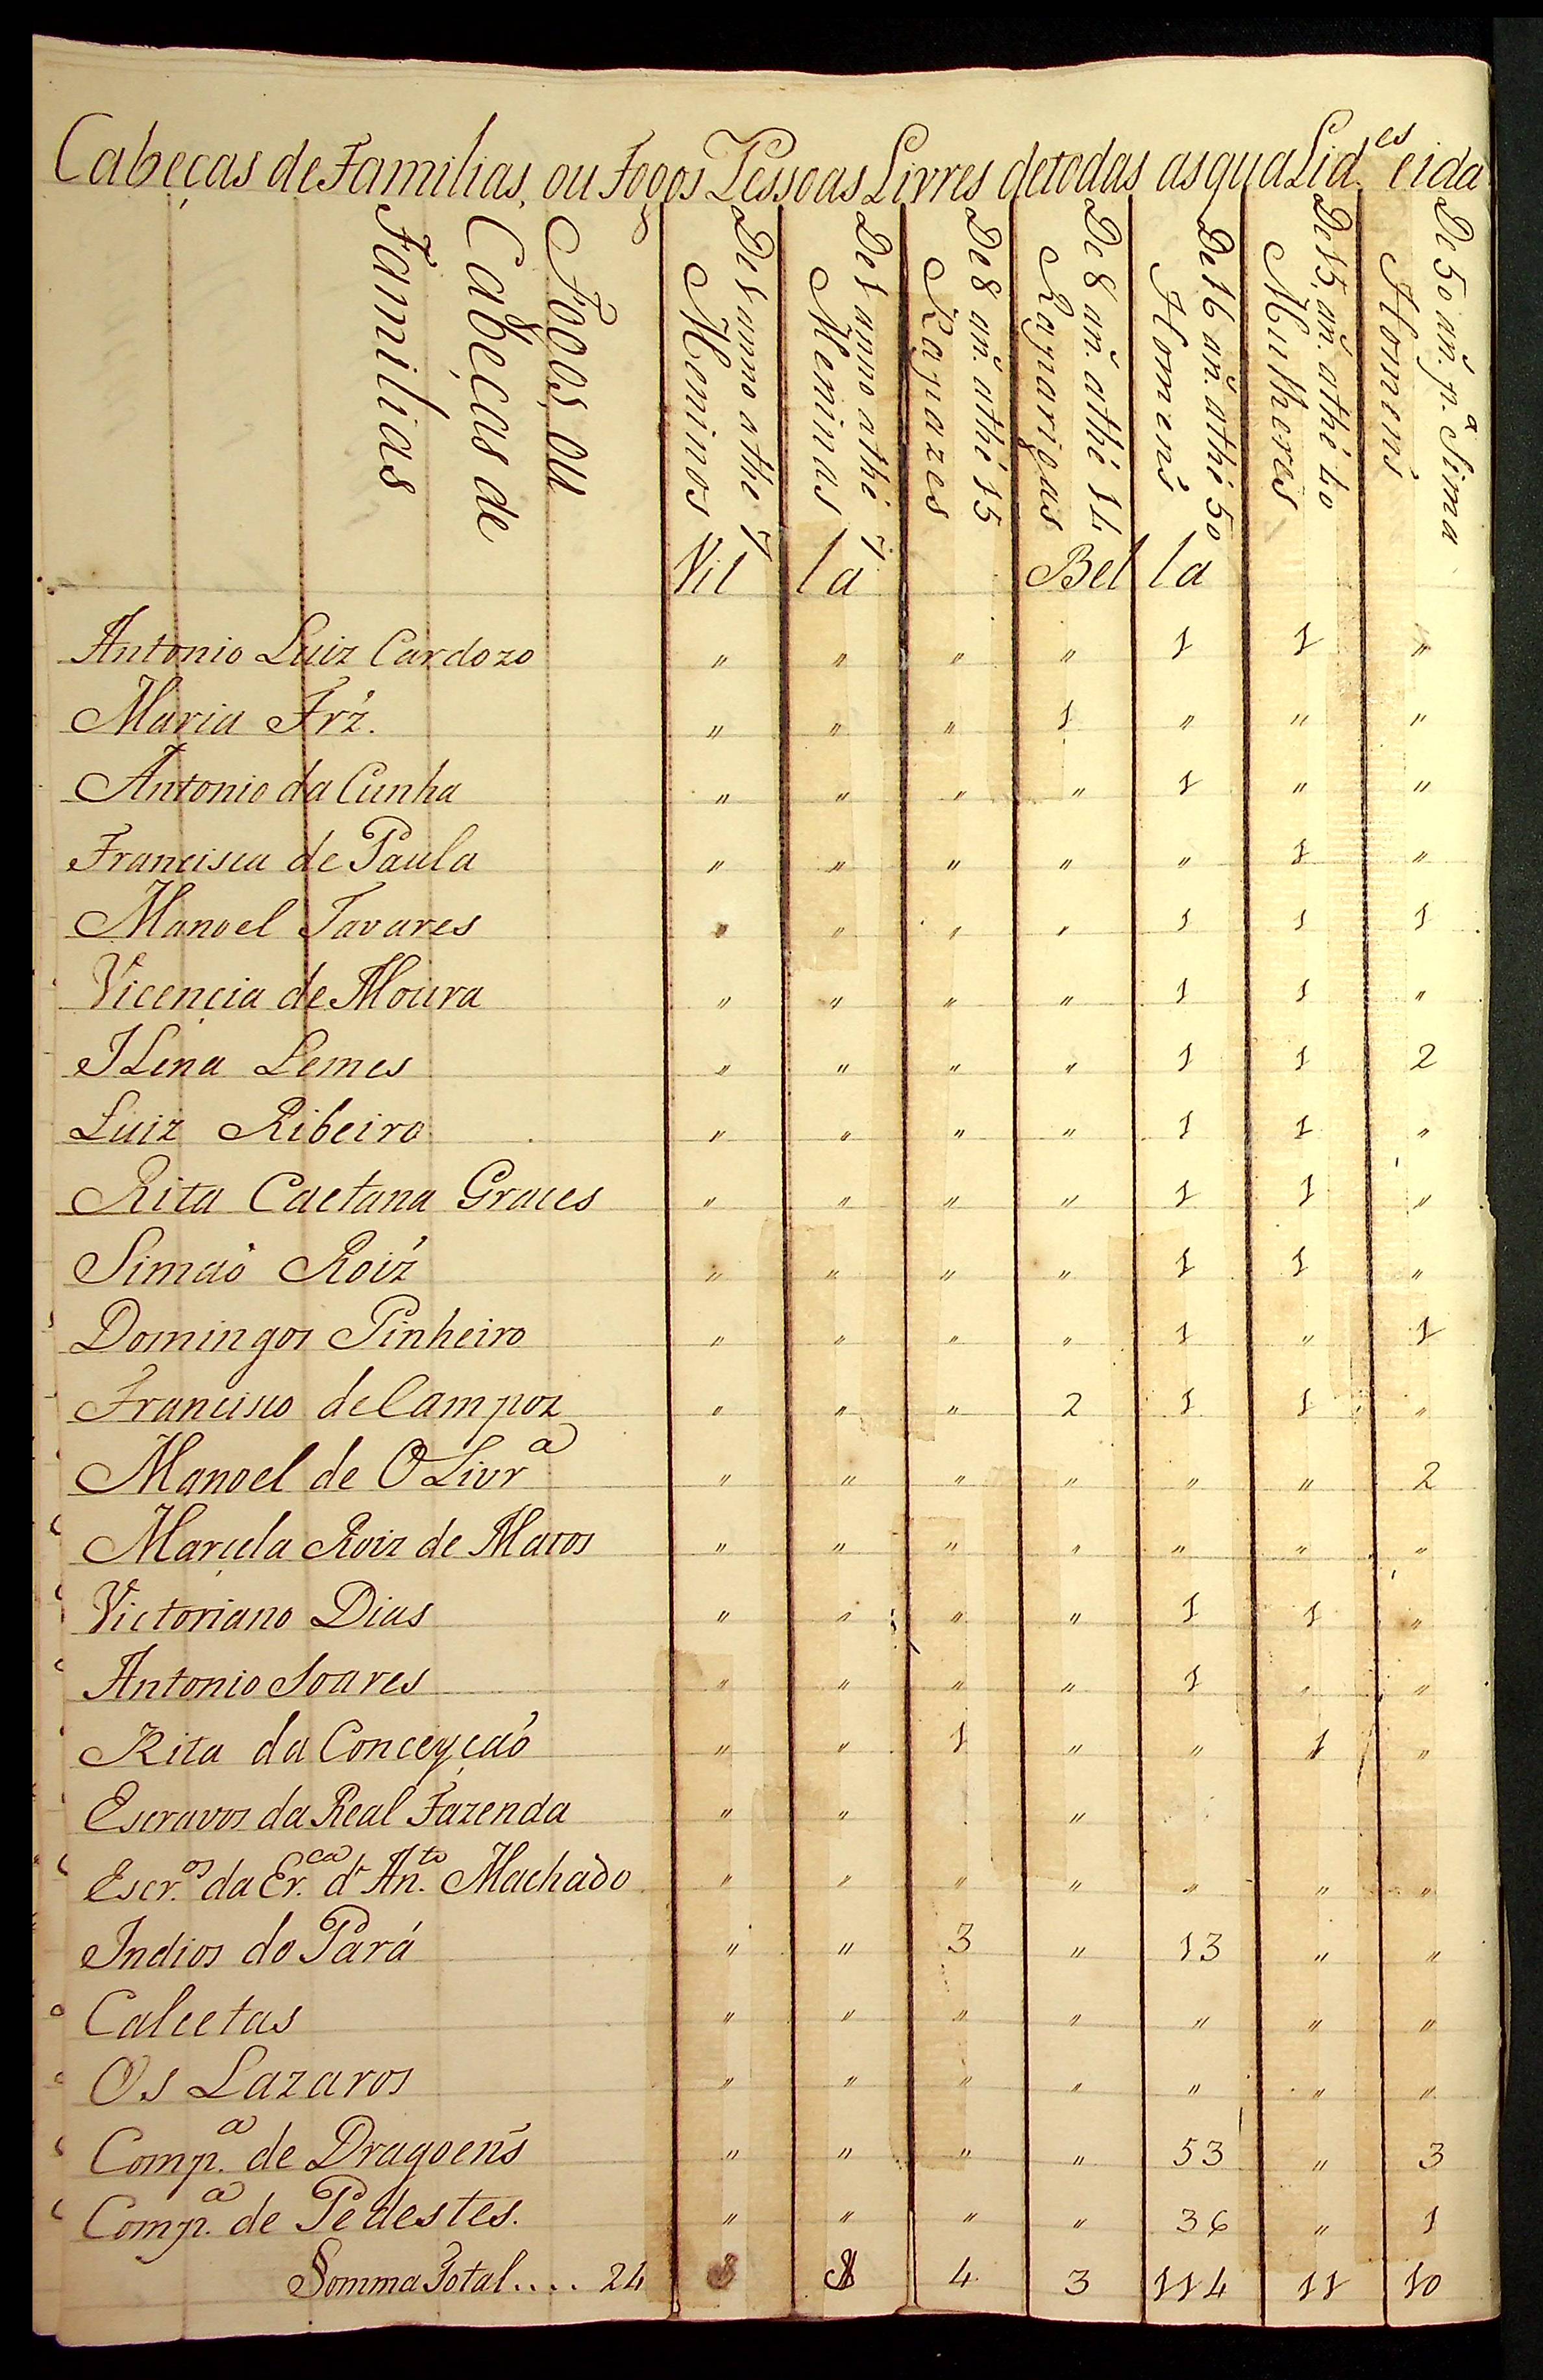 Cabeças de Familias, ou Fogos Pessoas Livres de todas as quaLid.es e ida
Fogos, ou
Cabeças de
Familias
De 1 anno athé 7
Meninos
De 1 anno athé 7
Meninas
De 8 an̄. athé 15
Rapazes
De 8 an̄. athé 14
Raparigas
De 16 an̄. athé 50
Homens
De 15, an̄. athé 40
Mulheres
De 50 an̄. p.a Sima
Homens
Vil la Bel la
Antonio Luiz Cardozo " " " " 1 1 "
Maria Frz̃. " " " 1 " " "
Antonio da Cunha " " " " 1 " "
Francisca de Paula " " " " " 1 "
Manoel Tavares " " " " 1 1 1
Vicençia de Moura " " " " 1 1 "
ILena Lemes " " " " 1 1 2
Luiz Ribeiro " " " " 1 1 "
Rita Caetana Graces " " " " 1 1 "
Simaõ Roiz̃ " " " " 1 1 "
Domingos Pinheiro " " " " 1 " 1
Francisco de Campoz " " " 2 1 1 "
Manoel de OLivr.a " " " " " " 2
Marçela Roiz de Matos " " " " " " "
Victoriano Dias " " " " 1 1 "
Antonio Soares " " " " 1 " "
Rita da Conceyçaõ " " 1 " " 1 "
Escravos da Real Fazenda " " "
Escr.os da Er.ca d' An.to Machado " " " " " " "
Indios do Pará " " 3 " 13 " "
Calcetas " " " " " " "
Os Lazaros " " " " " " "
Comp.a de Dragoens " " " " 53 " 3
Comp.a de Pedestes. " " " " 36 " 1
Somma Total.... 24 4 3 114 11 10